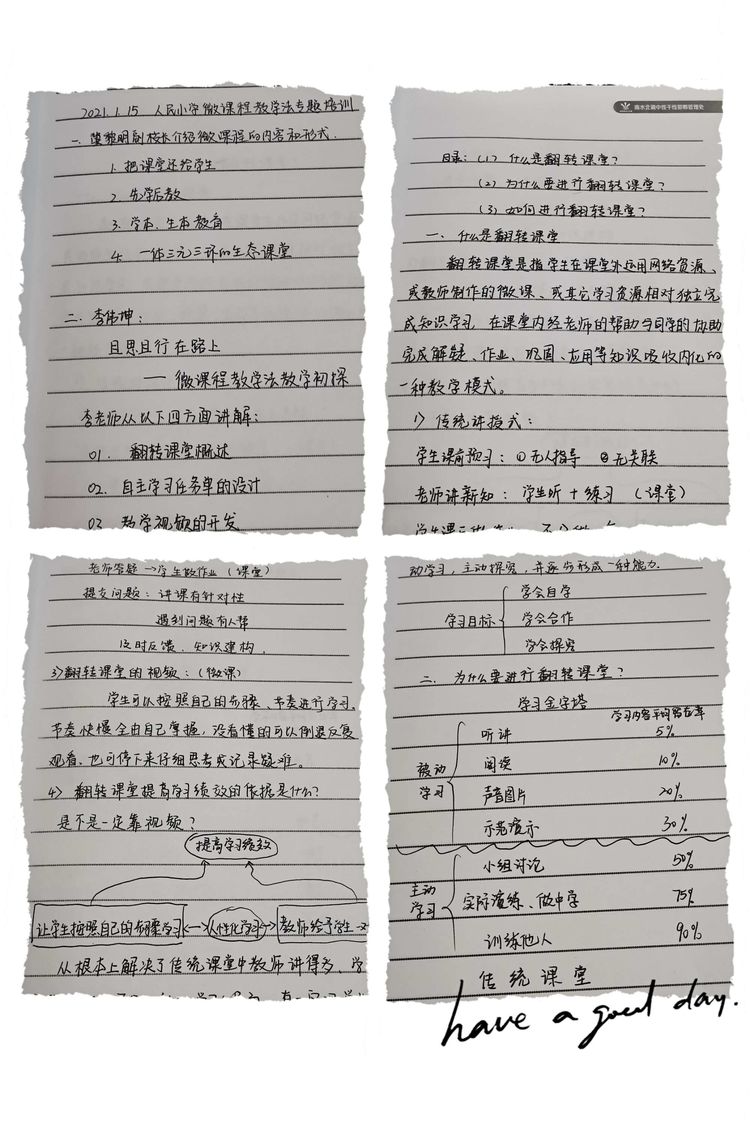 2021.1.15 人民小学微课程教学法专题培训
一、黎明副校长介绍微课程的内容和形式.
1. 把课堂还给学生
2. 先学后教
3. 学本、生本教育
4. 一体三元三环的生态课堂
二、李伟坤：
且思且行在路上
—— 微课程教学法教学初探
李老师从以下四方面讲解：
01. 翻转课堂概述
02. 自主学习任务单的设计
03. 教学视频的开发
南水北调中线干线邯郸管理处
目录：(1) 什么是翻转课堂？
(2) 为什么要进行翻转课堂？
(3) 如何进行翻转课堂？
一、什么是翻转课堂
翻转课堂是指学生在课堂外运用网络资源、
或教师制作的微课、或其它学习资源相对独立完
成知识学习，在课堂内经老师的帮助与同学的协助
完成解疑、作业、巩固、应用等知识吸收内化的
一种教学模式。
1) 传统讲授式：
学生课前预习：①无人指导 ②无关联
老师讲新知：学生听＋练习 (课堂)
老师答题→学生做作业 (课堂)
提交问题：讲课有针对性
遇到问题有人帮
及时反馈，知识建构.
3)翻转课堂的视频：(微课)
学生可以按照自己的步骤、节奏进行学习，
节奏快慢全由自己掌握，没看懂的可以倒退反复
观看，也可停下来仔细思考或记录疑难。
4) 翻转课堂提高学习绩效的依据是什么？
是不是一定靠视频？
提高学习绩效
让学生按照自己的步骤学习 ←→ 人性化学习 ←→ 教师给予学生一
从根本上解决了传统课堂中教师讲得多、学
动学习，主动探究，并逐步形成一种能力.
学习目标 学会自学
学会合作
学会探究
二、为什么要进行翻转课堂？
学习金字塔
学习内容平均留存率
被动学习 听讲 5%
阅读 10%
声音图片 20%
示范演示 30%
主动学习 小组讨论 50%
实际演练、做中学 75%
训练他人 90%
传统课堂
have a good day.